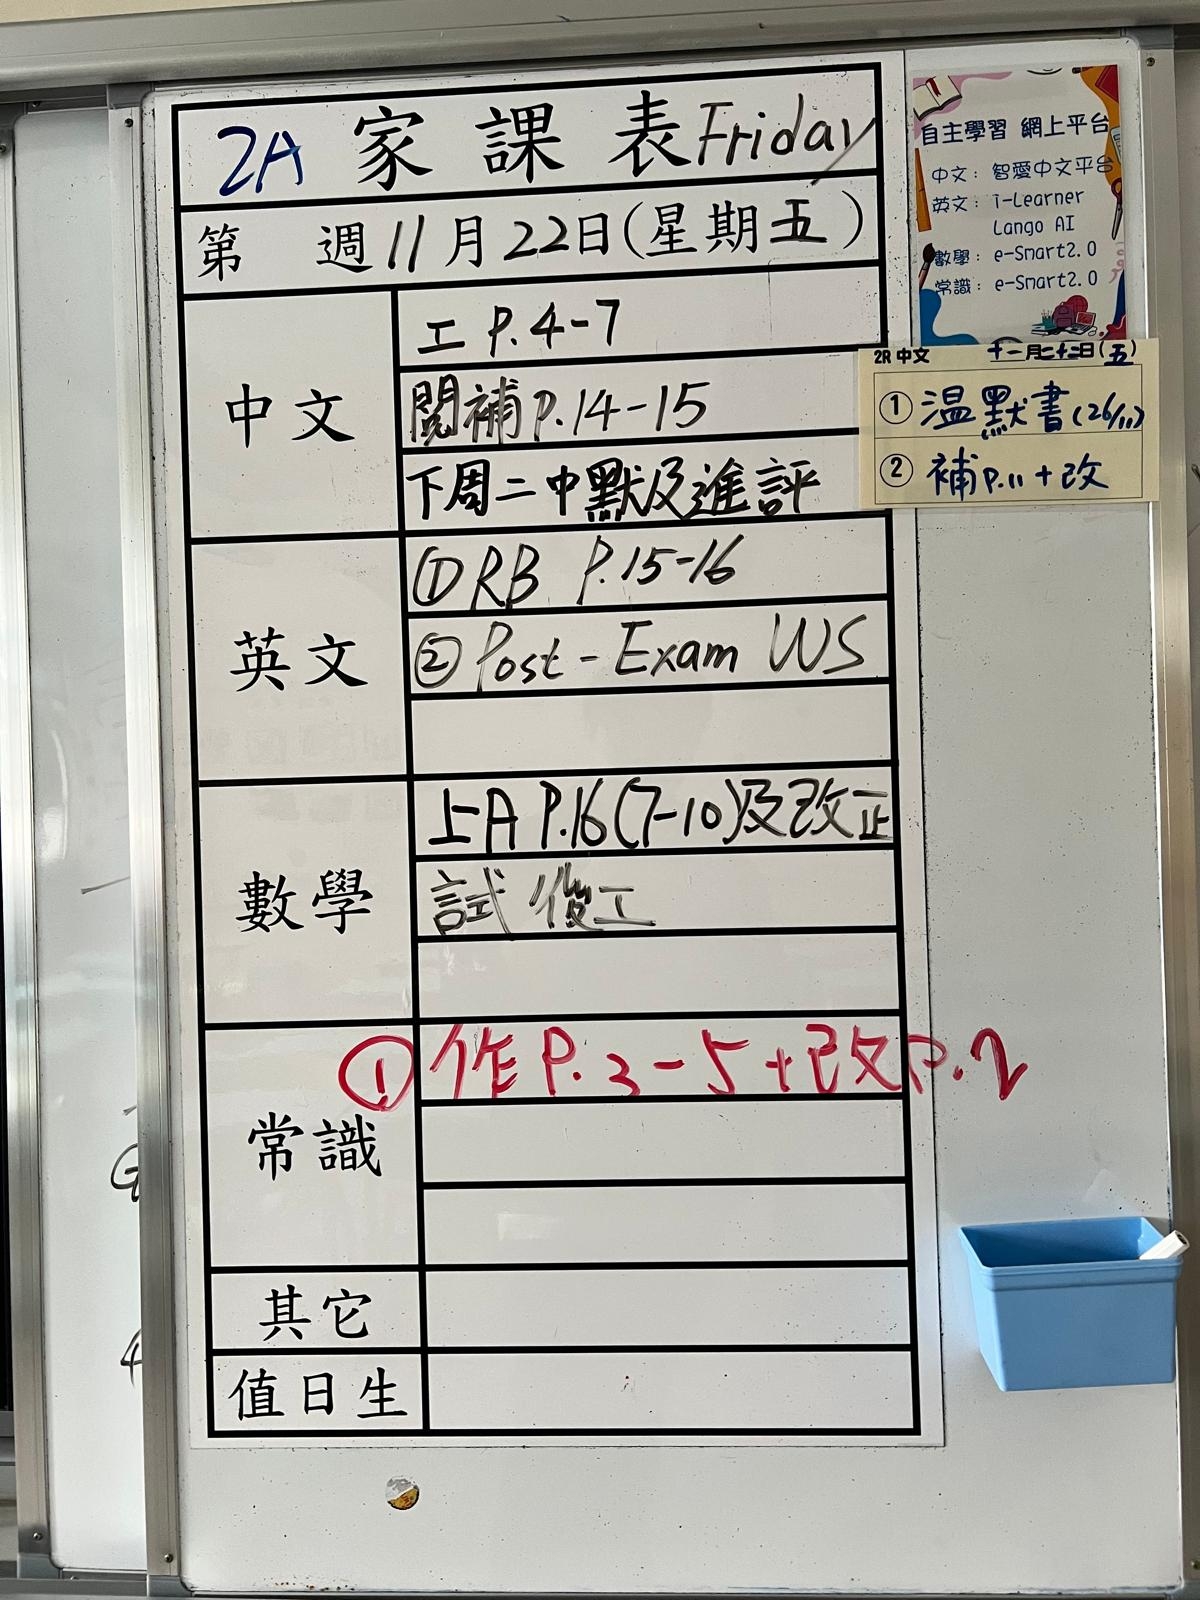 2A 家課表 Friday
第 週 11月22日(星期五)
中文
工 P.4-7
閱補 P.14-15
下周二中默及進評
英文
① RB P.15-16
② Post-Exam WS
數學
上A P.16(7-10)及改正
試後工
常識
① 作 P.3-5+改 P.2
其它
值日生
自主學習 網上平台
中文：智愛中文平台
英文：i-Learner
Lango AI
數學：e-Smart2.0
常識：e-Smart2.0
2R 中文 十一月二十二日(五)
① 溫默書(26/11)
② 補 P.11+改